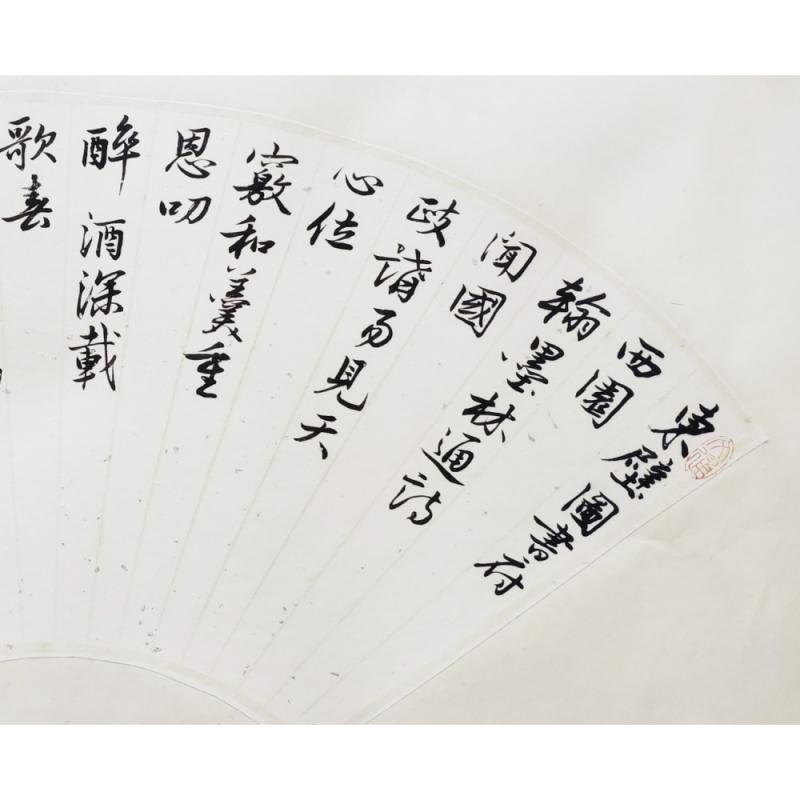 東壁圖書府
西園
翰墨林通詩
聞國
政講易見天
心位
竅和羹重
恩叨
醉酒深載
歌春